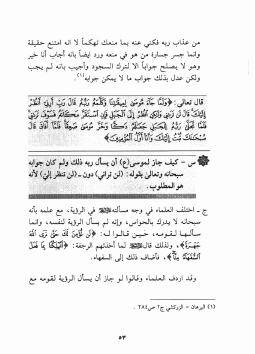 من عذاب ربه فكني عنه بما منعك تهكماً لا انه امتنع حقيقة
وانما جسر جسارة من هو في منعه ورد ايضاً بأنه أجاب أنا خير
وهو لا يصلح جواباً الا لترك السجود وأجيب بأنه لم يجب
ولكن عدل بذلك جواب ما لا يمكن جوابه(١).
قال تعالى: ﴿وَلَمَّا جَاءَ مُوسَىٰ لِمِيقَاتِنَا وَكَلَّمَهُ رَبُّهُ قَالَ رَبِّ أَرِنِي أَنظُرْ
إِلَيْكَ قَالَ لَن تَرَانِي وَلَٰكِنِ انظُرْ إِلَى الْجَبَلِ فَإِنِ اسْتَقَرَّ مَكَانَهُ فَسَوْفَ تَرَانِي
فَلَمَّا تَجَلَّىٰ رَبُّهُ لِلْجَبَلِ جَعَلَهُ دَكًّا وَخَرَّ مُوسَىٰ صَعِقًا فَلَمَّا أَفَاقَ قَالَ
سُبْحَانَكَ تُبْتُ إِلَيْكَ وَأَنَا أَوَّلُ الْمُؤْمِنِينَ﴾
س - كيف جاز لموسى(ع) أن يسأل ربه ذلك ولم كان جوابه
سبحانه وتعالى بقوله: (لن تراني) دون - (لن تنظر إليَّ) لأنه
هو المطلوب.
ج - اختلف العلماء في وجه مسألته في الرؤية، مع علمه بأنه
سبحانه لا يدرك بالحواس، وإنه لم يسأل الرؤية لنفسه، وانما
سألها لقومه، حين قالوا له: ﴿لَن نُّؤْمِنَ لَكَ حَتَّىٰ نَرَى اللَّهَ
جَهْرَةً﴾، ولذلك قال لما أخذتهم الرجفة: ﴿أَتُهْلِكُنَا بِمَا فَعَلَ
السُّفَهَاءُ مِنَّا﴾، فأضاف ذلك إلى السفهاء.
وقد اردف العلماء وقالوا لو جاز أن يسأل الرؤية لقومه مع
(١) البرهان - الزركشي ج٢ ص٣٨٤.
٥٣